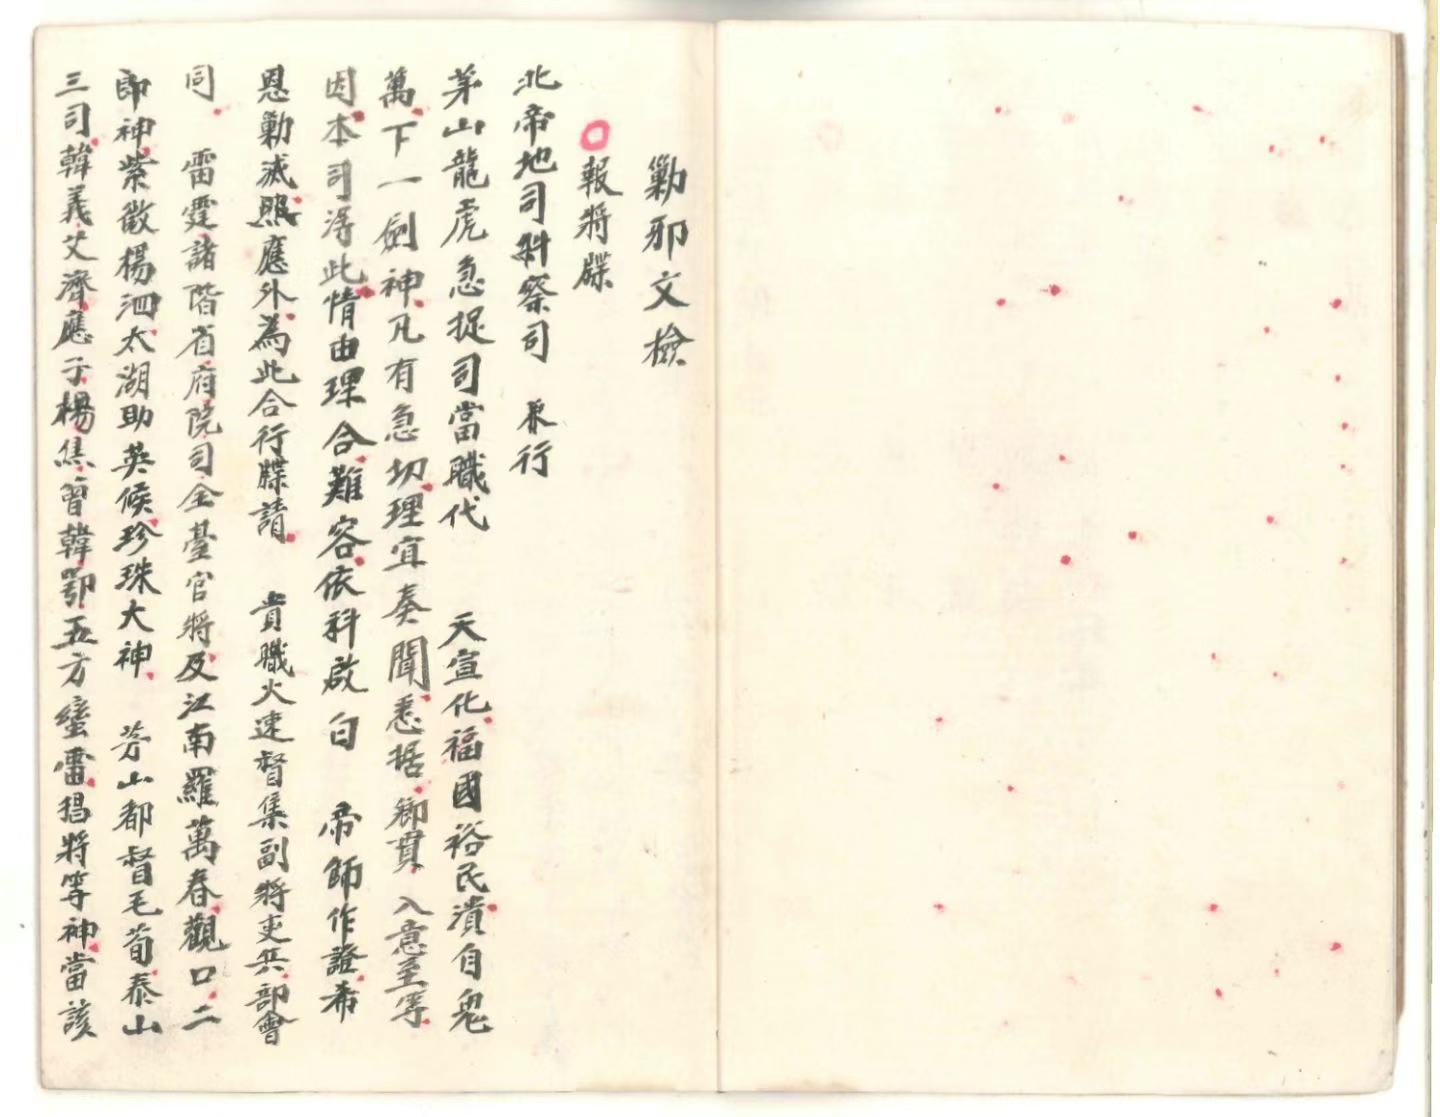 勦邪文檢
○報將牒
北帝地司糾察司 兼行
茅山龍虎急捉司當職代 天宣化福國裕民潰自鬼
萬下一劍神凡有急切理宜奏聞悉据鄉貫入意至等
因本司得此情由理合難容依科啟白 帝師作證希
恩勦滅照應外為此合行牒請 貴職火速督集副將吏兵部會
同 雷霆諸階省府院司金臺官將及江南羅萬春觀口二
郎神紫微楊泗太湖助英候珍珠大神 茅山都督毛荀泰山
三司韓義艾濟應子楊焦曾韓鄂五方蠻雷猖將等神當該